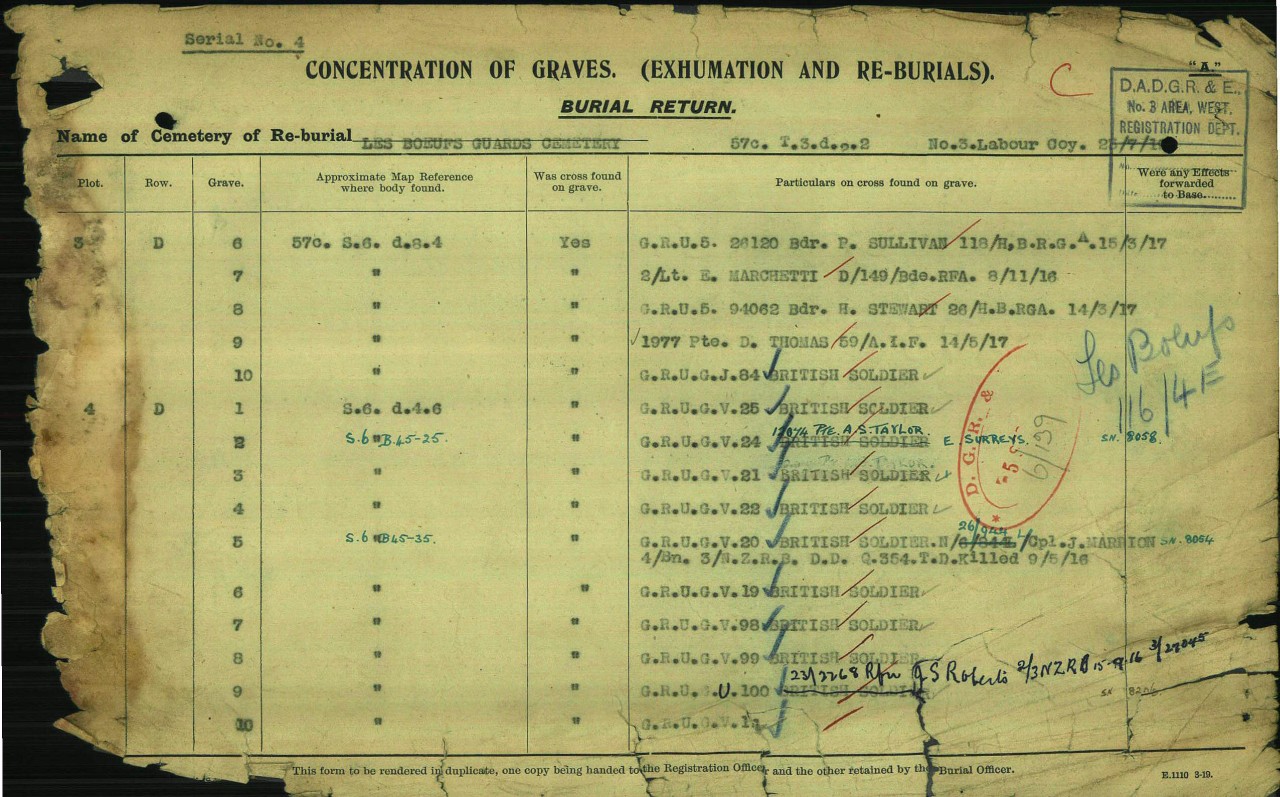 Serial No. 4
CONCENTRATION OF GRAVES. (EXHUMATION AND RE-BURIALS).
C
"A."
BURIAL RETURN.
D.A.D.G.R. & E.,
No. 3 AREA, WEST.
REGISTRATION DEPT.
Name of Cemetery of Re-burial LES BOEUFS GUARDS CEMETERY 57c. T.3.d.9.2 No.3.Labour Coy.
Plot. Row. Grave. Approximate Map Reference where body found. Was cross found on grave. Particulars on cross found on grave. Were any Effects forwarded to Base.
3 D 6 57c. S.6. d.8.4 Yes G.R.U.5. 26120 Bdr. P. SULLIVAN 118/H,B.R.G.A.15/3/17
7 " " 2/Lt. E. MARCHETTI D/149/Bde.RFA. 8/11/16
8 " " G.R.U.5. 94062 Bdr. H. STEWART 26/H.B.RGA. 14/3/17
9 " " 1977 Pte. D. THOMAS 59/A.I.F. 14/5/17
10 " " G.R.U.G.J.84 BRITISH SOLDIER
Les Boeufs
4 D 1 S.6. d.4.6 " G.R.U.G.V.25 BRITISH SOLDIER
2 S.6 B.45-25. " G.R.U.G.V.24 BRITISH SOLDIER Pte. A.S. TAYLOR. E. SURREYS. SN. 8058.
3 " " G.R.U.G.V.21 BRITISH SOLDIER
4 " " G.R.U.G.V.22 BRITISH SOLDIER
D.G.R. &
6/139
5 S.6 B45-35. " G.R.U.G.V.20 BRITISH SOLDIER.N/ 26/944 L/Cpl.J.MARRION SN. 8054
4/Bn. 3/N.Z.R.B. D.D. Q.354.T.D.Killed 9/5/16
6 " " G.R.U.G.V.19 BRITISH SOLDIER
7 " " G.R.U.G.V.98 BRITISH SOLDIER
8 " " G.R.U.G.V.99 BRITISH SOLDIER
9 " " G.R.U. U.100 BRITISH SOLDIER 23/2268 Rfn G S Roberts 2/3 NZRB 15-9-16
10 " " G.R.U.G.V.
This form to be rendered in duplicate, one copy being handed to the Registration Officer and the other retained by the Burial Officer.
E.1110 3-19.